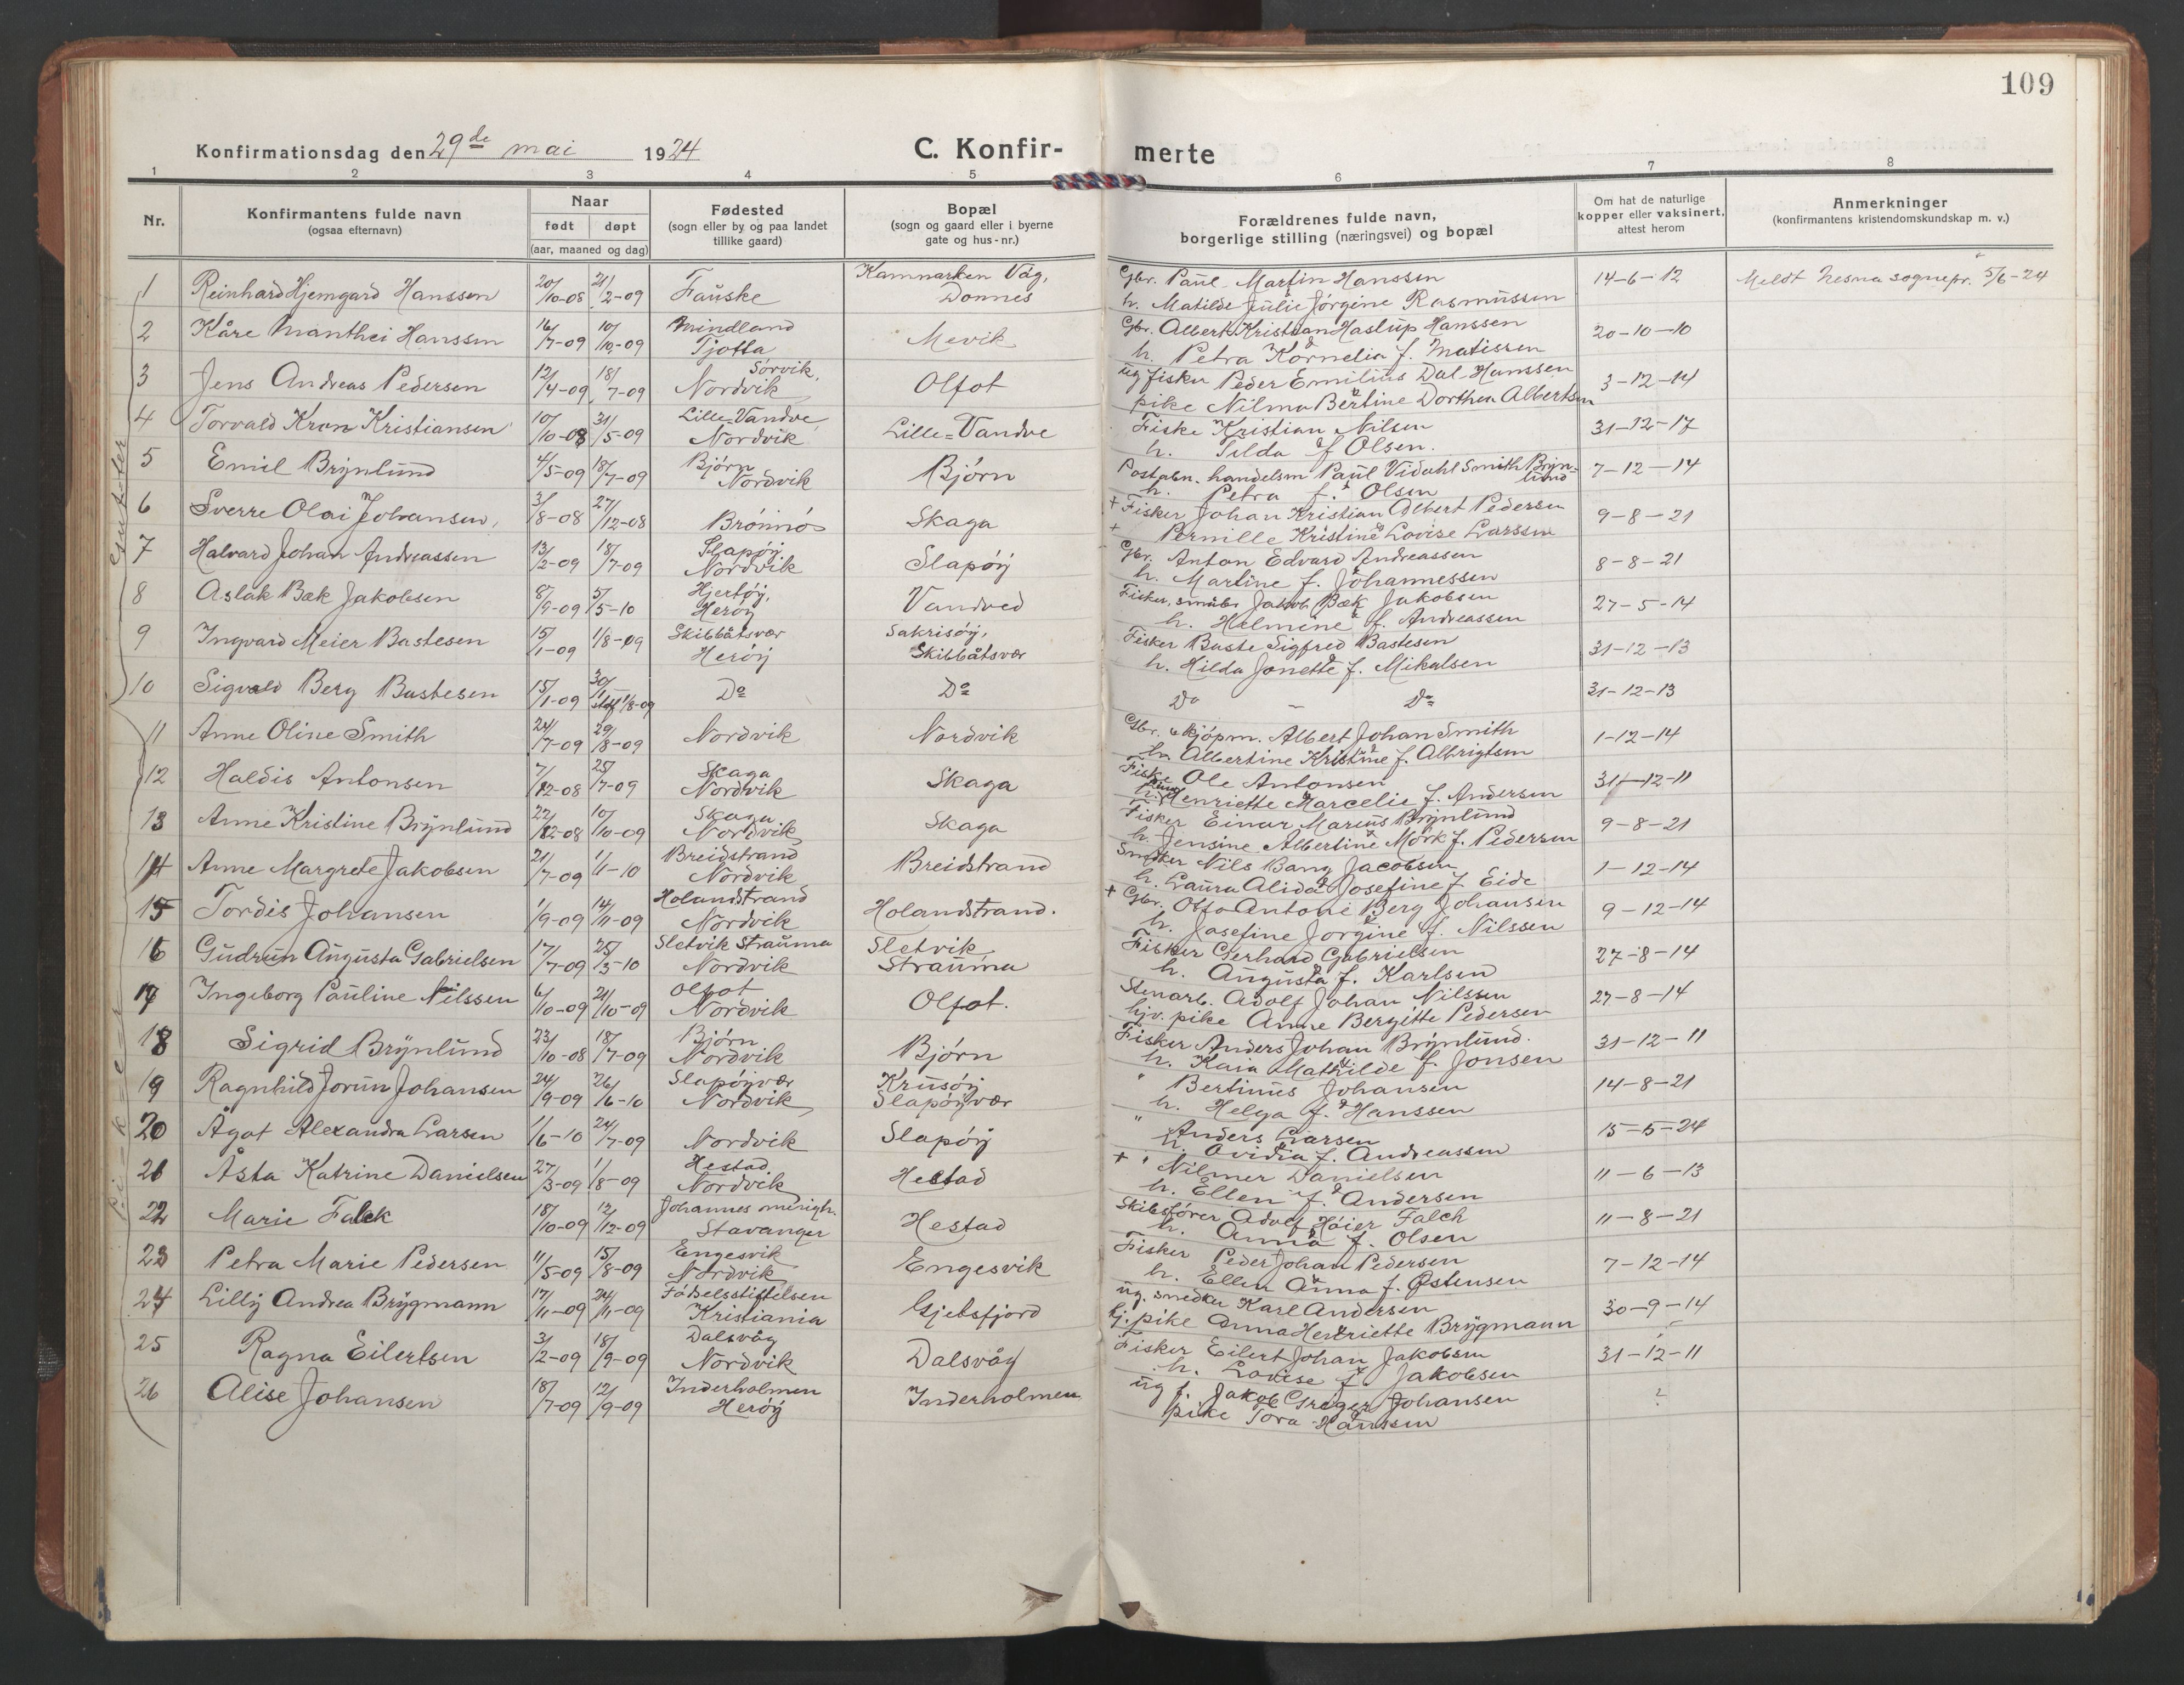 109
Konfirmationsdag den 29de mai 1924
C. Konfirmerte
1 2 3 4 5 6 7 8
Nr.
Konfirmantens fulde navn
(ogsaa efternavn)
Naar
født døpt
(aar, maaned og dag)
Fødested
(sogn eller by og paa landet
tillike gaard)
Bopæl
(sogn og gaard eller i byerne
gate og hus-nr.)
Forældrenes fulde navn,
borgerlige stilling (næringsvei) og bopæl
Om hat de naturlige
kopper eller vaksinert,
attest herom
Anmerkninger
(konfirmantens kristendomskundskap m. v.)
Gutter
Piker
1 Reinhard Hjemgard Hanssen 20/10-08 21/2-09 Fauske Kammarken Våg, Dønnes Gbr. Paul Martin Hanssen 14-6-12 Meldt Nesna sognepr. 5/6-24
h. Matilde Julie Jørgine Rasmussen
2 Kåre Manthei Hanssen 16/7-09 10/10-09 Mindland Tjøtta Mevik Gbr. Albert Kristian Haslup Hanssen 20-10-10
h. Petra Kornelia f. Matissen
3 Jens Andreas Pedersen 12/4-09 18/7-09 Sørvik, Nordvik Olfot ug fisker Peder Emilius Dal Hanssen 3-12-14
pike Nilma Bertine Dorthea Albertsen
4 Torvald Kron Kristiansen 10/10-08 31/5-09 Lille-Vandve Nordvik Lille-Vandve Fiske Kristian Nilsen 31-12-17
h. Tilda f Olsen.
5 Emil Brynlund 4/5-09 18/7-09 Bjørn Nordvik Bjørn Postabn. handelsm Paul Vidahl Smith Brynlund 7-12-14
h. Petra f. Olsen
6 Sverre Olai Johansen 3/8-08 27/12-08 Brønnøs Skaga + Fisker Johan Kristian Albert Pedersen 9-8-21
+ Pernille Kristine Lovise Larssen
7 Halvard Johan Andreassen 13/2-09 18/7-09 Slapøy. Nordvik Slapøy Gbr. Anton Edvard Andreassen 8-8-21
h. Martine f. Johannessen
8 Aslak Bæk Jakobsen 8/9-09 5/5-10 Hjertøy, Herøy Vandved Fisker, småbr Jakob Bæk Jakobsen 27-5-14
h. Helmine f. Andreassen
9 Ingvard Meier Bastesen 15/1-09 1/8-09 Skibbåtsvær Herøy Sakrisøy, Skibbåtsvær Fisker Baste Sigfred Bastesen 31-12-13
h. Hilda Jonette f. Mikalsen
10 Sigvald Berg Bastesen 15/1-09 30/1 stdf 1/8-09 Do Do Do - Do 31-12-13
11 Anne Oline Smith 24/7-09 29/8-09 Nordvik Nordvik Gbr. & kjøpm. Albert Johan Smith 1-12-14
h. Albertine Kristine f. Albrigtsen
12 Haldis Antonsen 7/12-08 25/7-09 Skaga Nordvik Skaga Fisker Ole Antonsen 31-12-11
h. Henriette Marcelie f. Andersen
13 Anne Kristine Brynlund 22/12-08 10/10-09 Skaga Nordvik Skaga Fisker Einar Marius Brynlund 9-8-21
h. Jensine Albertine Mørk f. Pedersen
14 Anne Margrete Jakobsen 21/7-09 1/1-10 Breidstrand Nordvik Breidstrand Snedker Nils Bang Jacobsen 1-12-14
h. Laura Alida Josefine f. Eide
15 Tordis Johansen 1/9-09 14/11-09 Holandstrand Nordvik Holandstrand. + Gbr. Otto Antoni Berg Johansen 9-12-14
h. Josefine Jørgine f. Nilssen
16 Gudrun Augusta Gabrielsen 17/7-09 25/3-10 Sletvik Strauma Nordvik Sletvik Strauma Fisker Gerhard Gabrielsen 27-8-14
h. Augusta f. Karlsen
17 Ingeborg Pauline Nilssen 6/10-09 21/10-09 Olfot Nordvik Olfot. Stenarb. Adolf Johan Nilssen 27-8-14
hjv. pike Anne Bergitte Pedersen
18 Sigrid Brynlund 23/10-08 18/7-09 Bjørn Nordvik Bjørn Fisker Anders Johan Brynlund. 31-12-11
h. Kaia Mathilde f. Jonsen
19 Ragnhild Jorun Johansen 24/9-09 26/6-10 Slapøyvær Nordvik Krusøy Slapøyvær " Bertinus Johansen 14-8-21
h. Helga f. Hanssen
20 Ågot Alexandra Larsen 1/6-10 24/7-09 Nordvik Slapøy " Anders Larsen 15-5-24
h. Ovidia f. Andreassen
21 Åsta Katrine Danielsen 27/3-09 1/8-09 Hestad Nordvik Hestad + " Nilmer Danielsen 11-6-13
h. Ellen f. Andersen
22 Marie Falck 18/10-09 12/12-09 Johannes menigh. Stavanger Hestad Skibsfører Adolf Høier Falch 11-8-21
h. Anna f. Olsen
23 Petra Marie Pedersen 11/5-09 15/8-09 Engesvik Nordvik Engesvik Fisker Peder Johan Pedersen 7-12-14
h. Ellen Anna f. Østensen
24 Lilly Andrea Brygmann 17/11-09 24/11-09 Fødselsstiftelsen Kristiania Gjetsfjord ug. snedker Karl Andersen 30-9-14
hj. pike Anna Henriette Brygmann
25 Ragna Eilertsen 3/2-09 18/9-09 Dalsvåg Nordvik Dalsvåg Fisker Eilert Johan Jakobsen 31-12-11
h. Lovise f. Jakobsen
26 Alise Johansen 18/7-09 12/9-09 Inderholmen Herøy Inderholmen ug f. Jakob Greger Johansen ?
pike Tora Hanssen